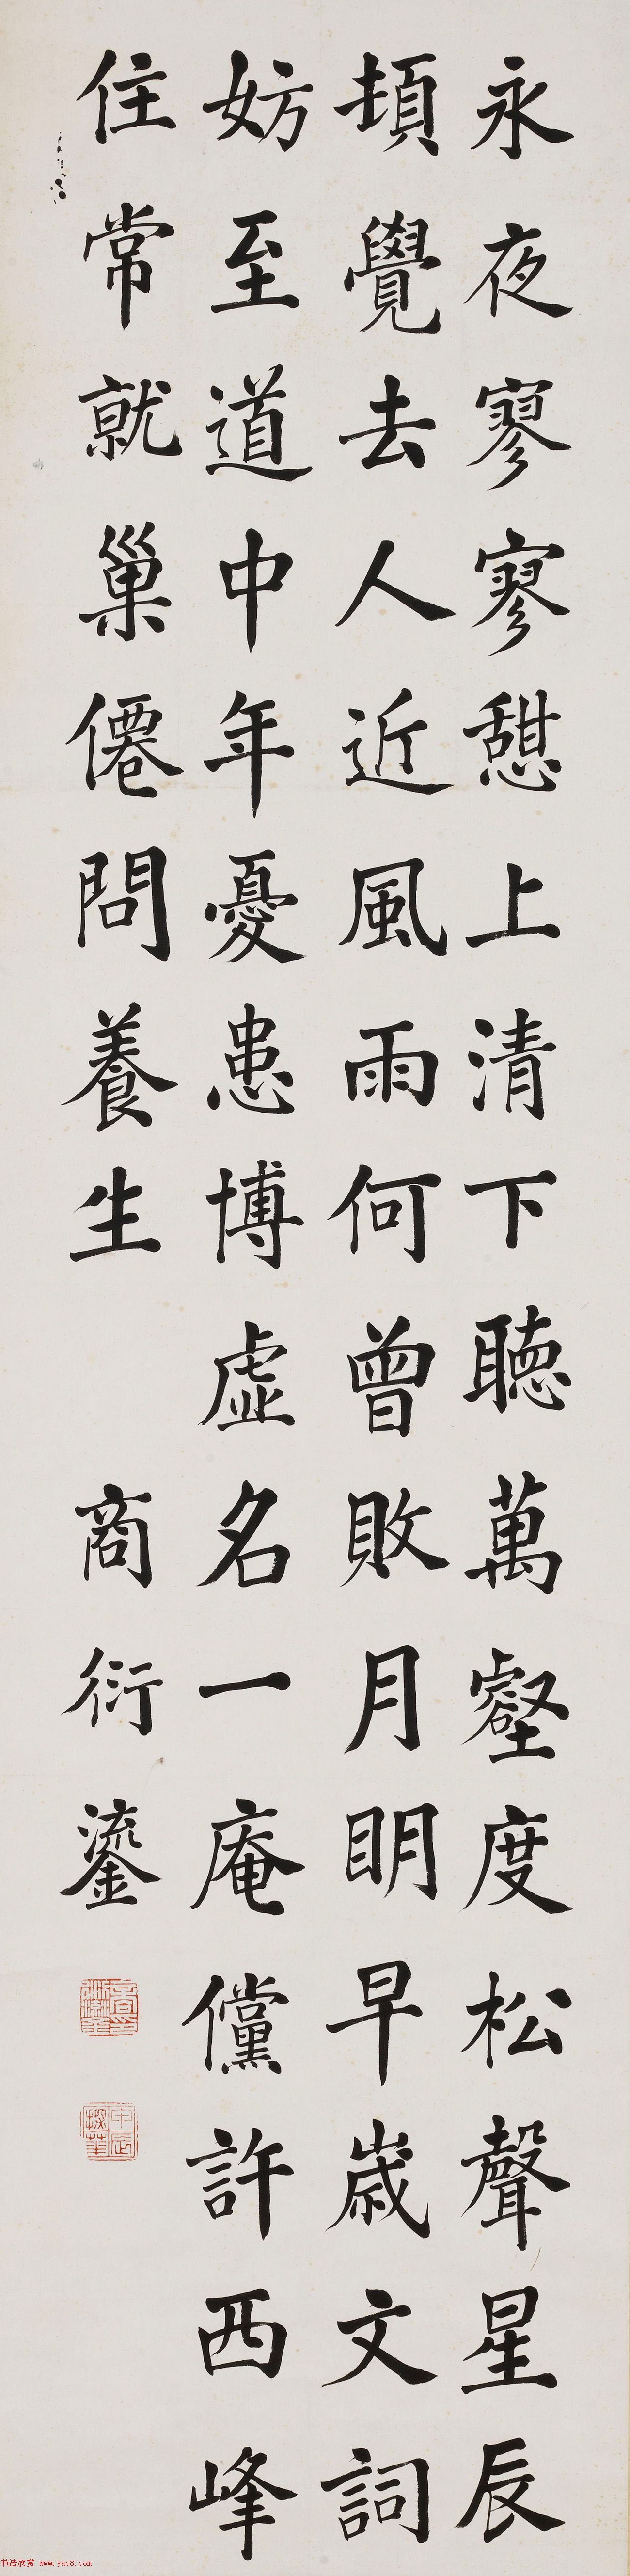 永夜寥寥憩上清下聽萬壑度松聲星辰
頓覺去人近風雨何曾敗月眀早歲文詞
妨至道中年憂患博虛名一庵儻許西峰
住常就巢僊問養生
商衍鎏
商印衍鎏
甲辰探華
书法欣赏 www.yac8.com